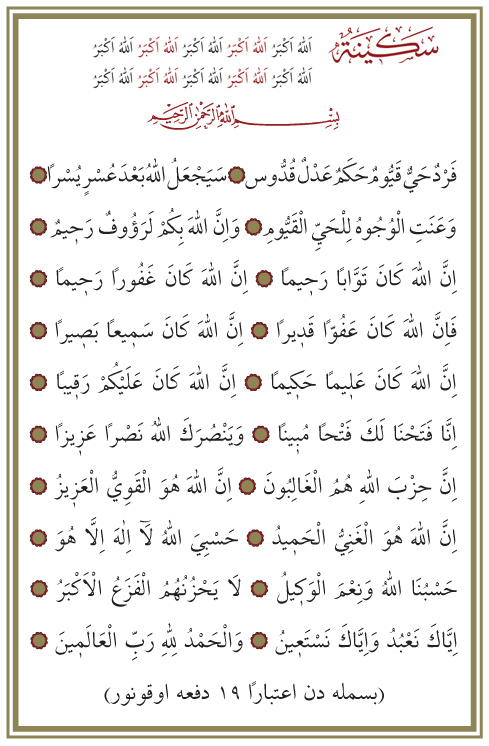 سكينة
اَللهُ اَكْبَرُ اَللهُ اَكْبَرُ اَللهُ اَكْبَرُ اَللهُ اَكْبَرُ اَللهُ اَكْبَرُ
اَللهُ اَكْبَرُ اَللهُ اَكْبَرُ اَللهُ اَكْبَرُ اَللهُ اَكْبَرُ اَللهُ اَكْبَرُ
بِسْمِ اللهِ الرَّحْمٰنِ الرَّحِيمِ
فَرْدٌ حَيٌّ قَيُّومٌ حَكَمٌ عَدْلٌ قُدُّوس سَيَجْعَلُ اللهُ بَعْدَ عُسْرٍ يُسْرًا
وَعَنَتِ الْوُجُوهُ لِلْحَيِّ الْقَيُّومِ وَاِنَّ اللهَ بِكُمْ لَرَؤُوفٌ رَحِيمٌ
اِنَّ اللهَ كَانَ تَوَّابًا رَحِيمًا اِنَّ اللهَ كَانَ غَفُورًا رَحِيمًا
فَاِنَّ اللهَ كَانَ عَفُوًّا قَدِيرًا اِنَّ اللهَ كَانَ سَمِيعًا بَصِيرًا
اِنَّ اللهَ كَانَ عَلِيمًا حَكِيمًا اِنَّ اللهَ كَانَ عَلَيْكُمْ رَقِيبًا
اِنَّا فَتَحْنَا لَكَ فَتْحًا مُبِينًا وَيَنْصُرَكَ اللهُ نَصْرًا عَزِيزًا
اِنَّ حِزْبَ اللهِ هُمُ الْغَالِبُونَ اِنَّ اللهَ هُوَ الْقَوِيُّ الْعَزِيزُ
اِنَّ اللهَ هُوَ الْغَنِيُّ الْحَمِيدُ حَسْبِيَ اللهُ لَآ اِلٰهَ اِلَّا هُوَ
حَسْبُنَا اللهُ وَنِعْمَ الْوَكِيلُ لَا يَحْزُنُهُمُ الْفَزَعُ الْاَكْبَرُ
اِيَّاكَ نَعْبُدُ وَاِيَّاكَ نَسْتَعِينُ وَالْحَمْدُ لِلهِ رَبِّ الْعَالَمِينَ
(بسمله دن اعتبارًا ١٩ دفعه اوقونور)